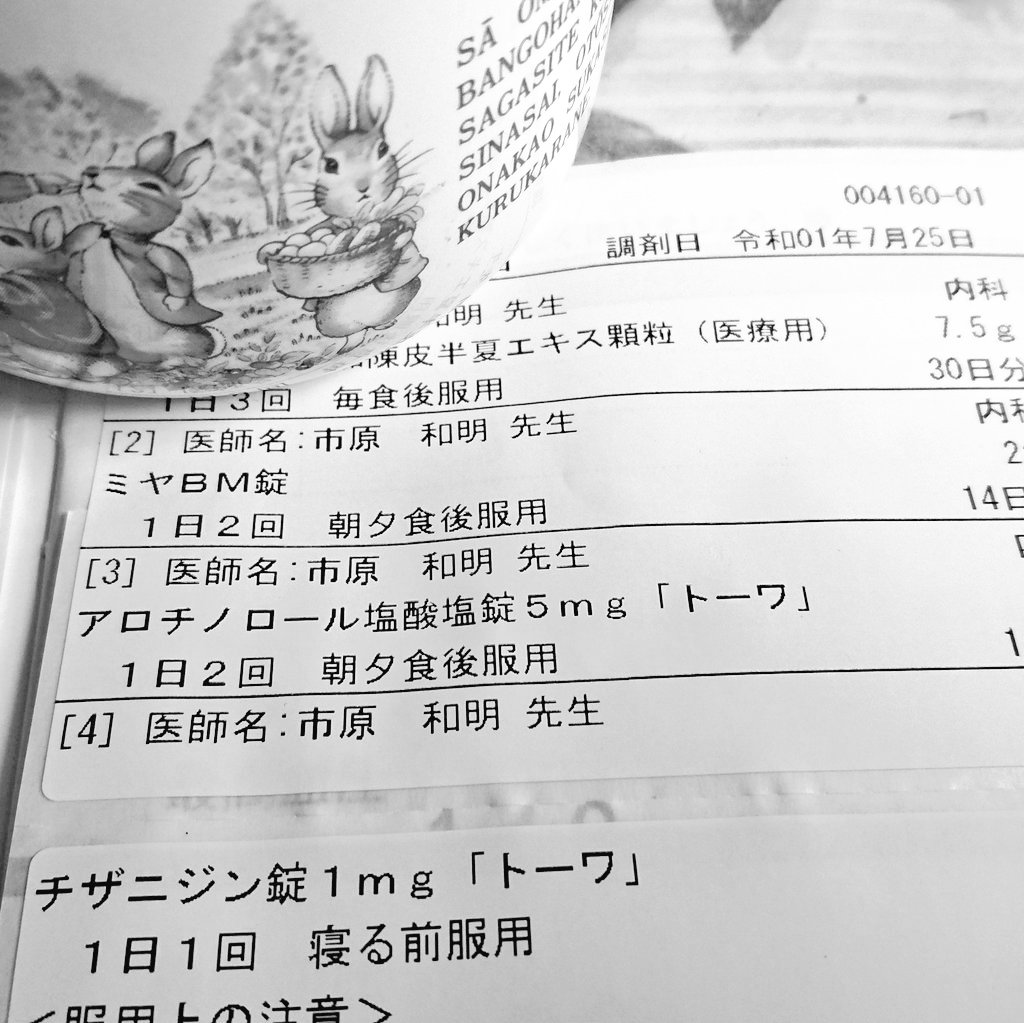 SĀ
BANGOHA
SAGASITE
SINASAI.
ONAKAO
KURUKARANE
004160-01
調剤日 令和01年7月25日
和明 先生 内科
陳皮半夏エキス顆粒(医療用) 7.5g
1日3回 毎食後服用 30日分
[2] 医師名:市原 和明 先生 内科
ミヤBM錠 2
1日2回 朝夕食後服用 14日
[3] 医師名:市原 和明 先生
アロチノロール塩酸塩錠5mg「トーワ」
1日2回 朝夕食後服用 1
[4] 医師名:市原 和明 先生
チザニジン錠1mg「トーワ」
1日1回 寝る前服用
<服用上の注意>